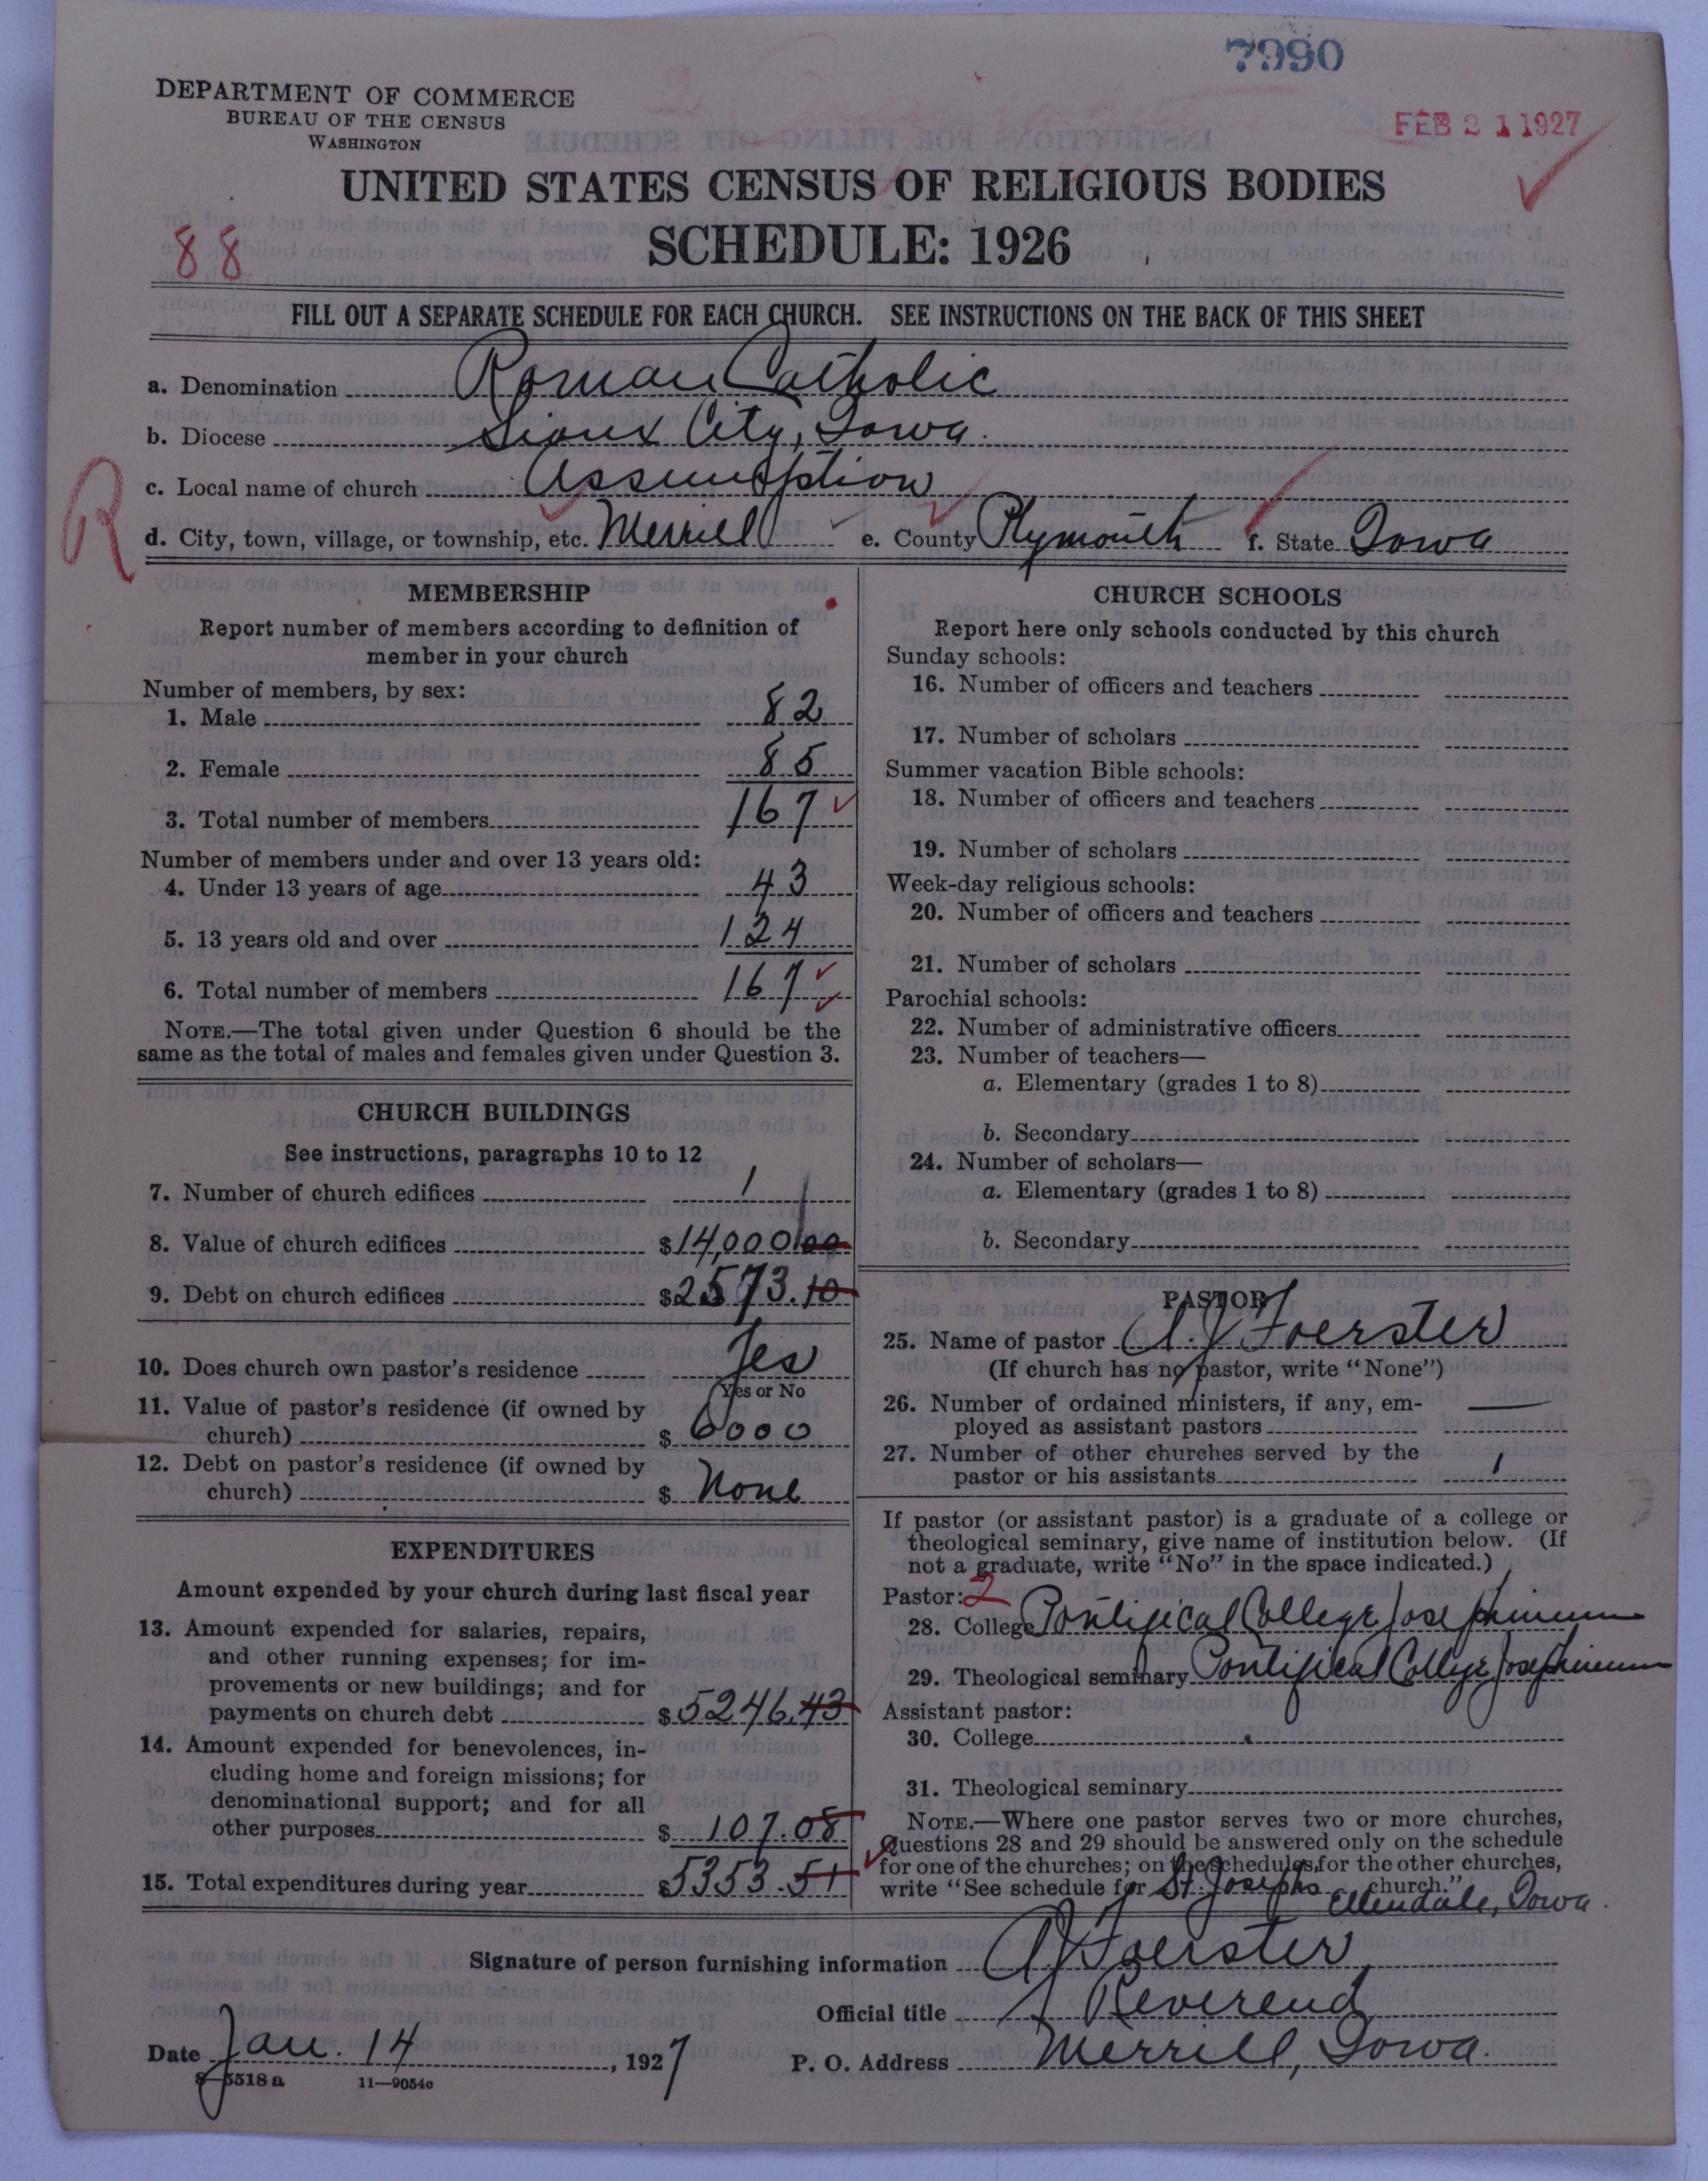 7990
DEPARTMENT OF COMMERCE
BUREAU OF THE CENSUS
WASHINGTON
FEB 21 1927
UNITED STATES CENSUS OF RELIGIOUS BODIES
88
SCHEDULE: 1926
FILL OUT A SEPARATE SCHEDULE FOR EACH CHURCH. SEE INSTRUCTIONS ON THE BACK OF THIS SHEET
a. Denomination Roman Catholic
b. Diocese Sioux City, Iowa.
c. Local name of church Assumption
R
d. City, town, village, or township, etc. Merrill e. County Plymouth f. State Iowa
MEMBERSHIP
Report number of members according to definition of
member in your church
Number of members, by sex:
1. Male 82
2. Female 85
3. Total number of members 167
Number of members under and over 13 years old:
4. Under 13 years of age 43
5. 13 years old and over 124
6. Total number of members 167
NOTE.—The total given under Question 6 should be the
same as the total of males and females given under Question 3.
CHURCH BUILDINGS
See instructions, paragraphs 10 to 12
7. Number of church edifices 1
8. Value of church edifices $14,000 00
9. Debt on church edifices $2573.10
10. Does church own pastor's residence Yes
Yes or No
11. Value of pastor's residence (if owned by
church) $ 6000
12. Debt on pastor's residence (if owned by
church) $ None
EXPENDITURES
Amount expended by your church during last fiscal year
13. Amount expended for salaries, repairs,
and other running expenses; for im-
provements or new buildings; and for
payments on church debt $5246.43
14. Amount expended for benevolences, in-
cluding home and foreign missions; for
denominational support; and for all
other purposes $ 107.08
15. Total expenditures during year $5353.51
CHURCH SCHOOLS
Report here only schools conducted by this church
Sunday schools:
16. Number of officers and teachers
17. Number of scholars
Summer vacation Bible schools:
18. Number of officers and teachers
19. Number of scholars
Week-day religious schools:
20. Number of officers and teachers
21. Number of scholars
Parochial schools:
22. Number of administrative officers
23. Number of teachers—
a. Elementary (grades 1 to 8)
b. Secondary
24. Number of scholars—
a. Elementary (grades 1 to 8)
b. Secondary
PASTOR
25. Name of pastor A. J. Foerster
(If church has no pastor, write "None")
26. Number of ordained ministers, if any, em-
ployed as assistant pastors —
27. Number of other churches served by the
pastor or his assistants 1
If pastor (or assistant pastor) is a graduate of a college or
theological seminary, give name of institution below. (If
not a graduate, write "No" in the space indicated.)
Pastor: 2
28. College Pontifical College Josephinum
29. Theological seminary Pontifical College Josephinum
Assistant pastor:
30. College
31. Theological seminary
NOTE.—Where one pastor serves two or more churches,
Questions 28 and 29 should be answered only on the schedule
for one of the churches; on the schedules for the other churches,
write "See schedule for St. Josephs church."
Ellendale, Iowa.
Signature of person furnishing information A J Foerster
Official title Reverend
Date Jan. 14, 1927 P. O. Address Merrill, Iowa.
8—5518a 11—9054c